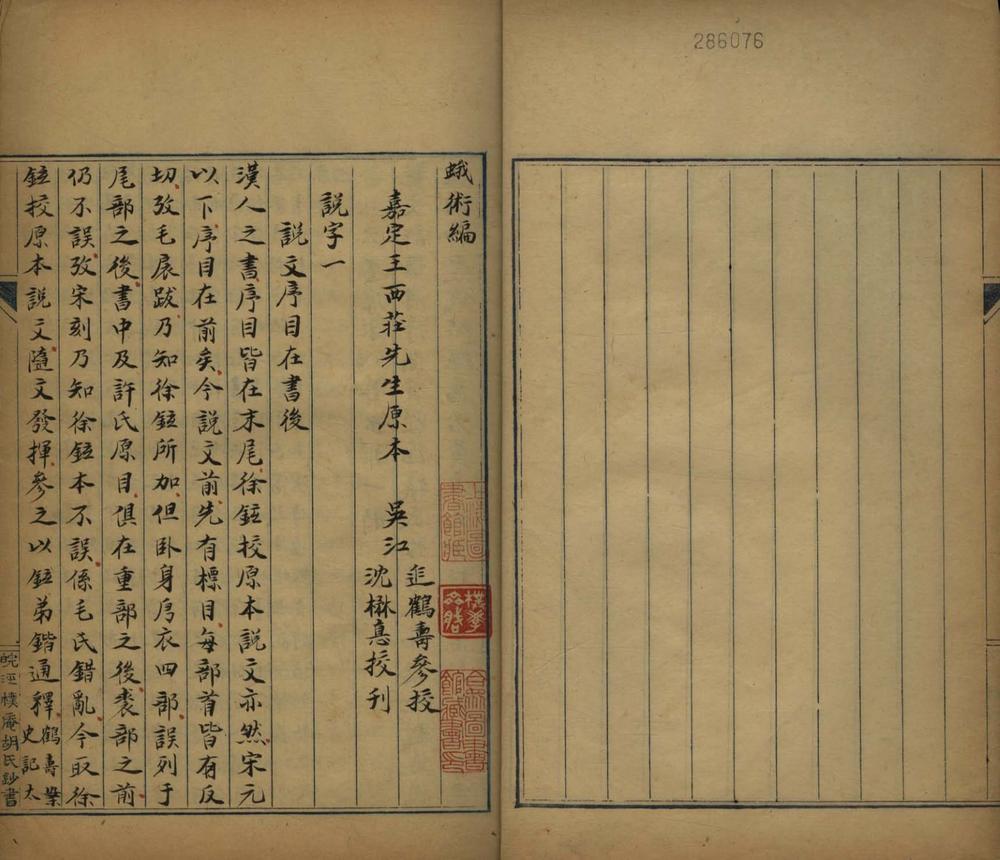 286076
蛾術編
嘉定王西莊先生原本 吳江
迮鶴壽參挍
沈楙悳挍刊
說字一
說文序目在書後
漢人之書序目皆在末尾徐鉉挍原本說文亦然宋元
以下序目在前矣今說文前先有標目每部首皆有反
切攷毛扆跋乃知徐鉉所加但卧身㐆衣四部誤列于
尾部之後書中及許氏原目俱在重部之後裘部之前
仍不誤攷宋刻乃知徐鉉本不誤係毛氏錯亂今取徐
鉉挍原本說文隨文發揮參之以鉉弟鍇通釋鶴壽案
史記太
皖涇樸庵胡氏鈔書